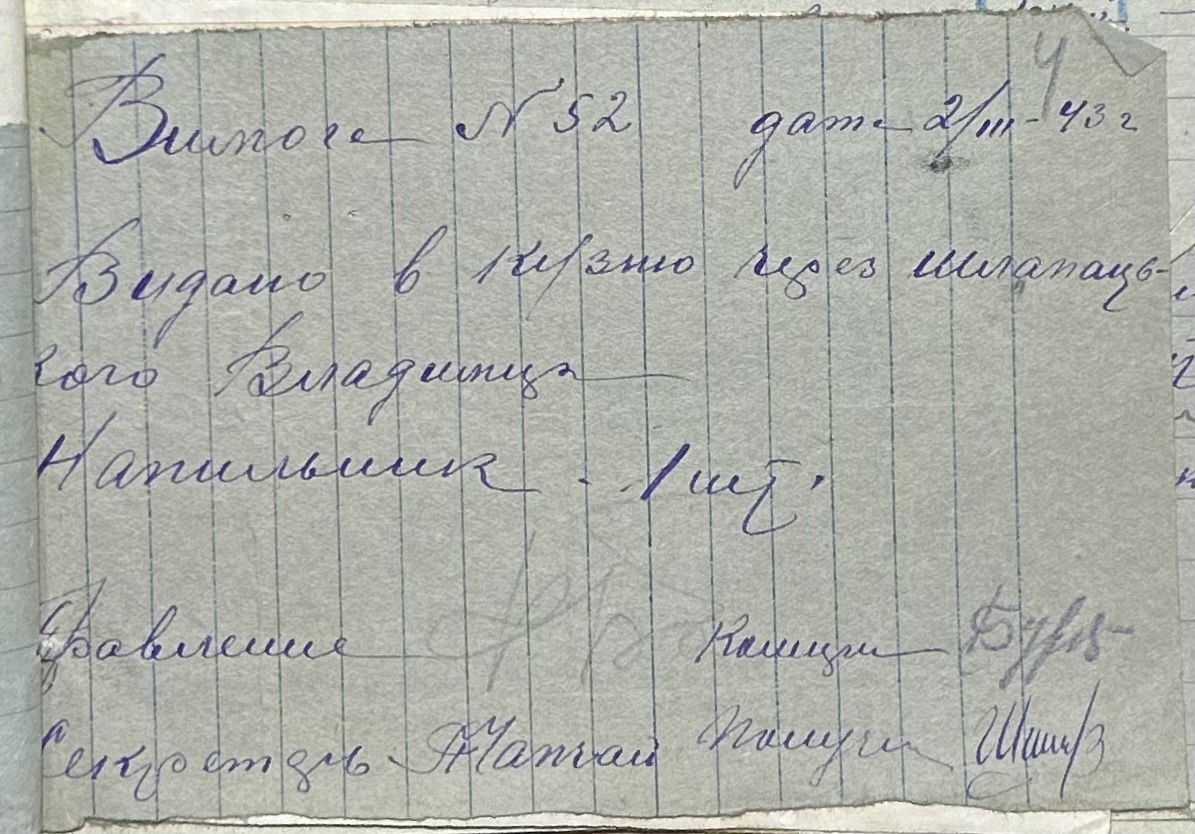 4
Вимога N 52 дата 2/III - 43 г
Видано в кузню через Шлапаць-
кого Владимира
Напильник - 1 шт.
Правление
Секретарь Получил